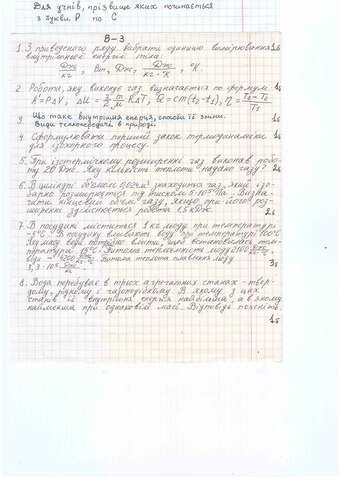 Для учнів, прізвище яких починається
з букви Р по С
В-3
1. З приведеного ряду вибрати одиницю вимірювання 1б
внутрішньої енергії тіла.
Дж/кг, Вт, Дж, Дж/кг·К, °К
2. Робота, яку виконує газ визначається по формулі 1б
A=PΔV, ΔU = m/μ RΔT, Q=cm(t₂-t₁), η = 
3. Що таке внутрішня енергія, способи її зміни.
Види теплопередачі в природі.
4. Сформулювати перший закон термодинаміки 1б
для ізохорного процесу.
5. При ізотермічному розширенні газ виконав робо-
ту 20 Дж. Яку кількість теплоти надано газу? 2б
6. В циліндрі об'ємом знаходится газ, який ізо-
барно розширюється під тиском 5·10⁵ Па. Визна-
чити кінцевий об'єм газу, якщо при його роз-
ширенні здійснюється робота 1,5 кДж. 2б
7. В посудині міститься 1 кг льоду при температурі
-5°С. В посудину вливають воду при температурі 100°С
Яку масу води потрібно влити, щоб встановилась тем-
пература Питома теплоємність льоду 2100 Дж/кг·К
води - 4200 Дж/кг·К Питома теплота плавлення льоду
3,3·10⁵ Дж/кг 3б
8. Вода перебуває в трьох агрегатних станах - твер-
дому, рідкому і газоподібному. В якому з цих
станів її внутрішня енергія найбільша, а в якому
найменша при однаковій масі. Відповідь поясніть.
1б